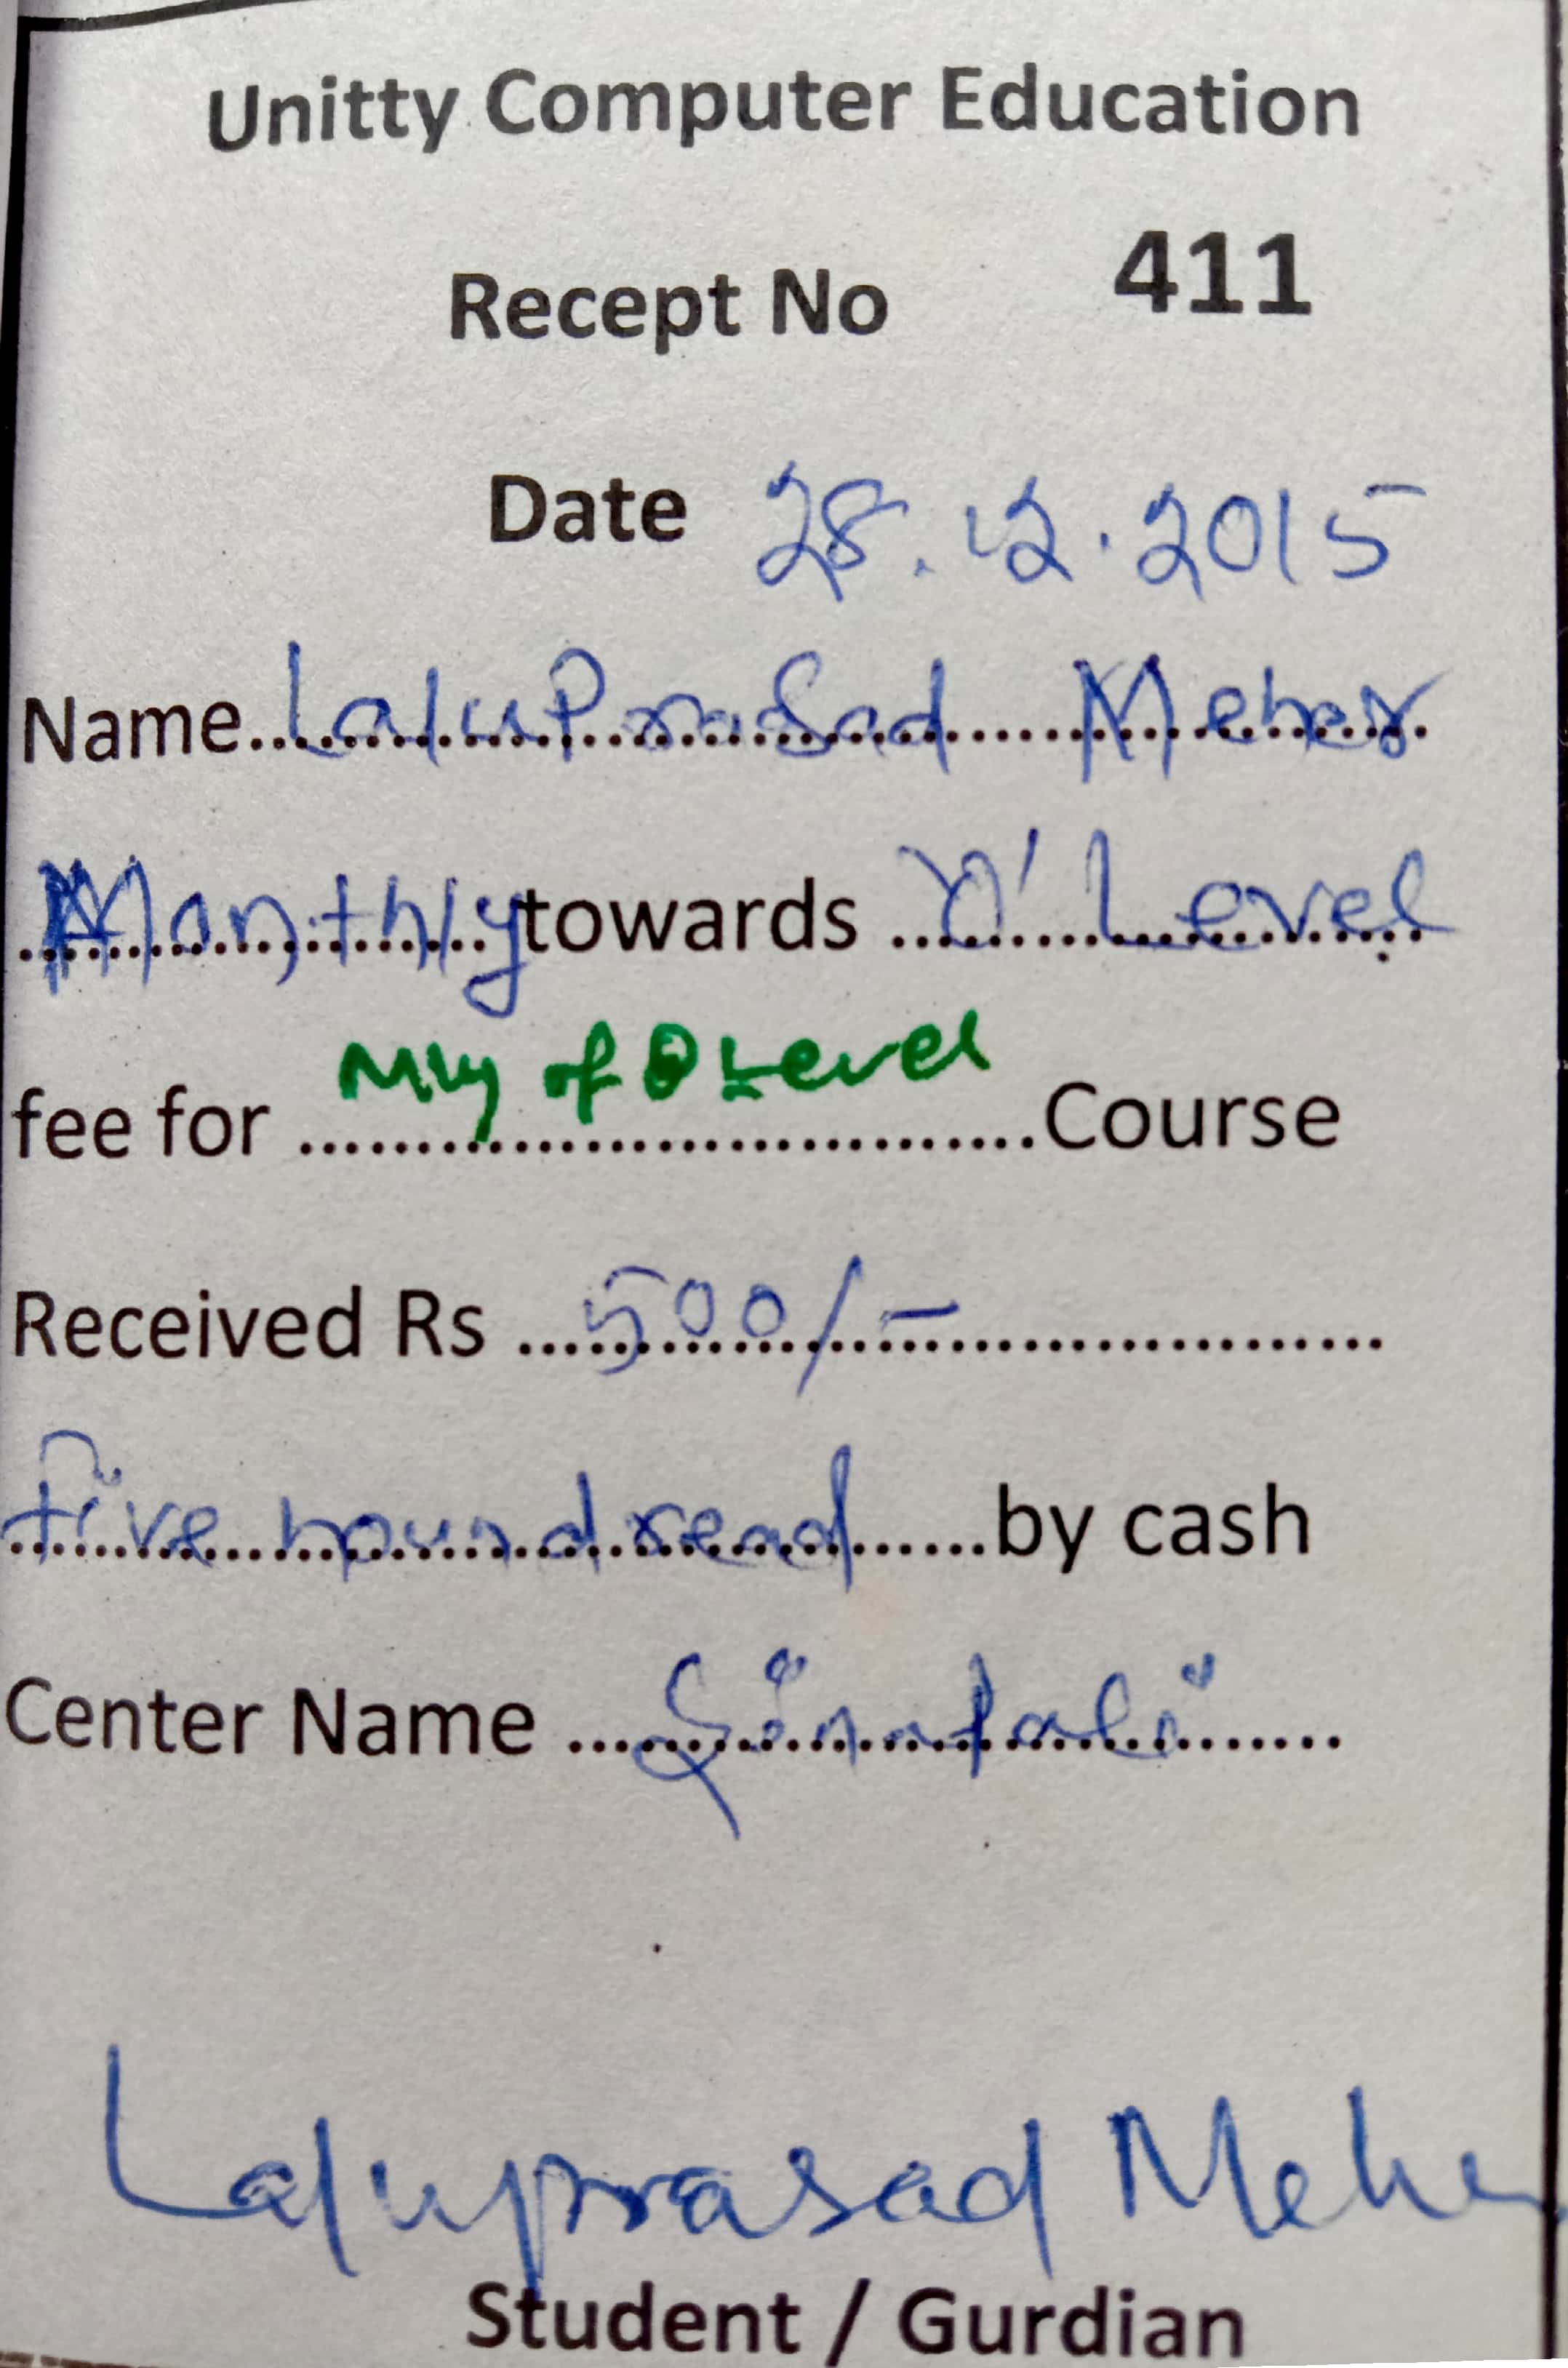 Unitty Computer Education
Recept No 411
Date 28.12.2015
Name LaluPrasad Meher
Monthly towards 'O' Level
fee for Mly of O Level Course
Received Rs 500/-
Five houndread by cash
Center Name Sinapali
Laluprasad Meher
Student / Gurdian